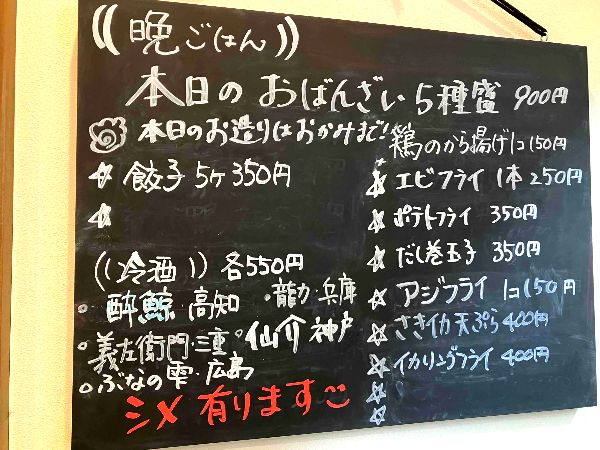 晩ごはん
本日のおばんざい5種盛 900円
本日のお造りはおかみまで!
餃子 5ケ 350円
鶏のから揚げ1コ150円
エビフライ 1本 250円
ポテトフライ 350円
だし巻玉子 350円
アジフライ 1コ150円
さきイカ天ぷら 400円
イカリングフライ 400円
冷酒 各550円
酔鯨・高知 ・龍力・兵庫
義左衛門・三重 仙介 神戸
ぶなの雫・広島
シメ 有ります